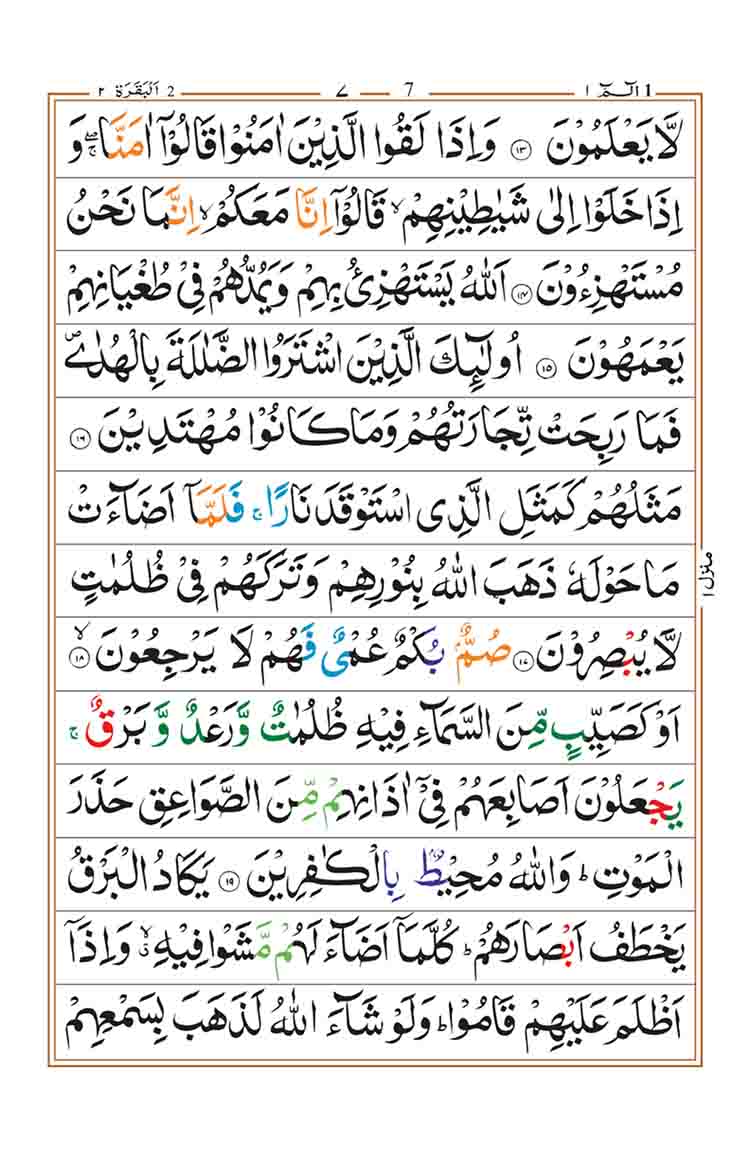 1 الٓـمّٓ ١ 7 ٧ 2 اَلْبَقَرَة ٢
لَّا يَعْلَمُوْنَ ١٣ وَاِذَا لَقُوا الَّذِيْنَ اٰمَنُوْا قَالُوْٓا اٰمَنَّا ۖۚ وَ
اِذَا خَلَوْا اِلٰى شَيٰطِيْنِهِمْ ۙ قَالُوْٓا اِنَّا مَعَكُمْ ۙ اِنَّمَا نَحْنُ
مُسْتَهْزِءُوْنَ ١٤ اَللّٰهُ يَسْتَهْزِئُ بِهِمْ وَيَمُدُّهُمْ فِيْ طُغْيَانِهِمْ
يَعْمَهُوْنَ ١٥ اُولٰٓئِكَ الَّذِيْنَ اشْتَرَوُا الضَّلٰلَةَ بِالْهُدٰى ۪
فَمَا رَبِحَتْ تِّجَارَتُهُمْ وَمَا كَانُوْا مُهْتَدِيْنَ ١٦
مَثَلُهُمْ كَمَثَلِ الَّذِى اسْتَوْقَدَ نَارًا ۚ فَلَمَّآ اَضَآءَتْ
مَا حَوْلَهٗ ذَهَبَ اللّٰهُ بِنُوْرِهِمْ وَتَرَكَهُمْ فِيْ ظُلُمٰتٍ
لَّا يُبْصِرُوْنَ ١٧ صُمٌّۢ بُكْمٌ عُمْيٌ فَهُمْ لَا يَرْجِعُوْنَ ۙ ١٨
اَوْ كَصَيِّبٍ مِّنَ السَّمَآءِ فِيْهِ ظُلُمٰتٌ وَّرَعْدٌ وَّبَرْقٌ ۚ
يَجْعَلُوْنَ اَصَابِعَهُمْ فِيْٓ اٰذَانِهِمْ مِّنَ الصَّوَاعِقِ حَذَرَ
الْمَوْتِ ؕ وَاللّٰهُ مُحِيْطٌۢ بِالْكٰفِرِيْنَ ١٩ يَكَادُ الْبَرْقُ
يَخْطَفُ اَبْصَارَهُمْ ؕ كُلَّمَآ اَضَآءَ لَهُمْ مَّشَوْا فِيْهِ ۙۗ وَاِذَآ
اَظْلَمَ عَلَيْهِمْ قَامُوْا ؕ وَلَوْ شَآءَ اللّٰهُ لَذَهَبَ بِسَمْعِهِمْ
منزل ١